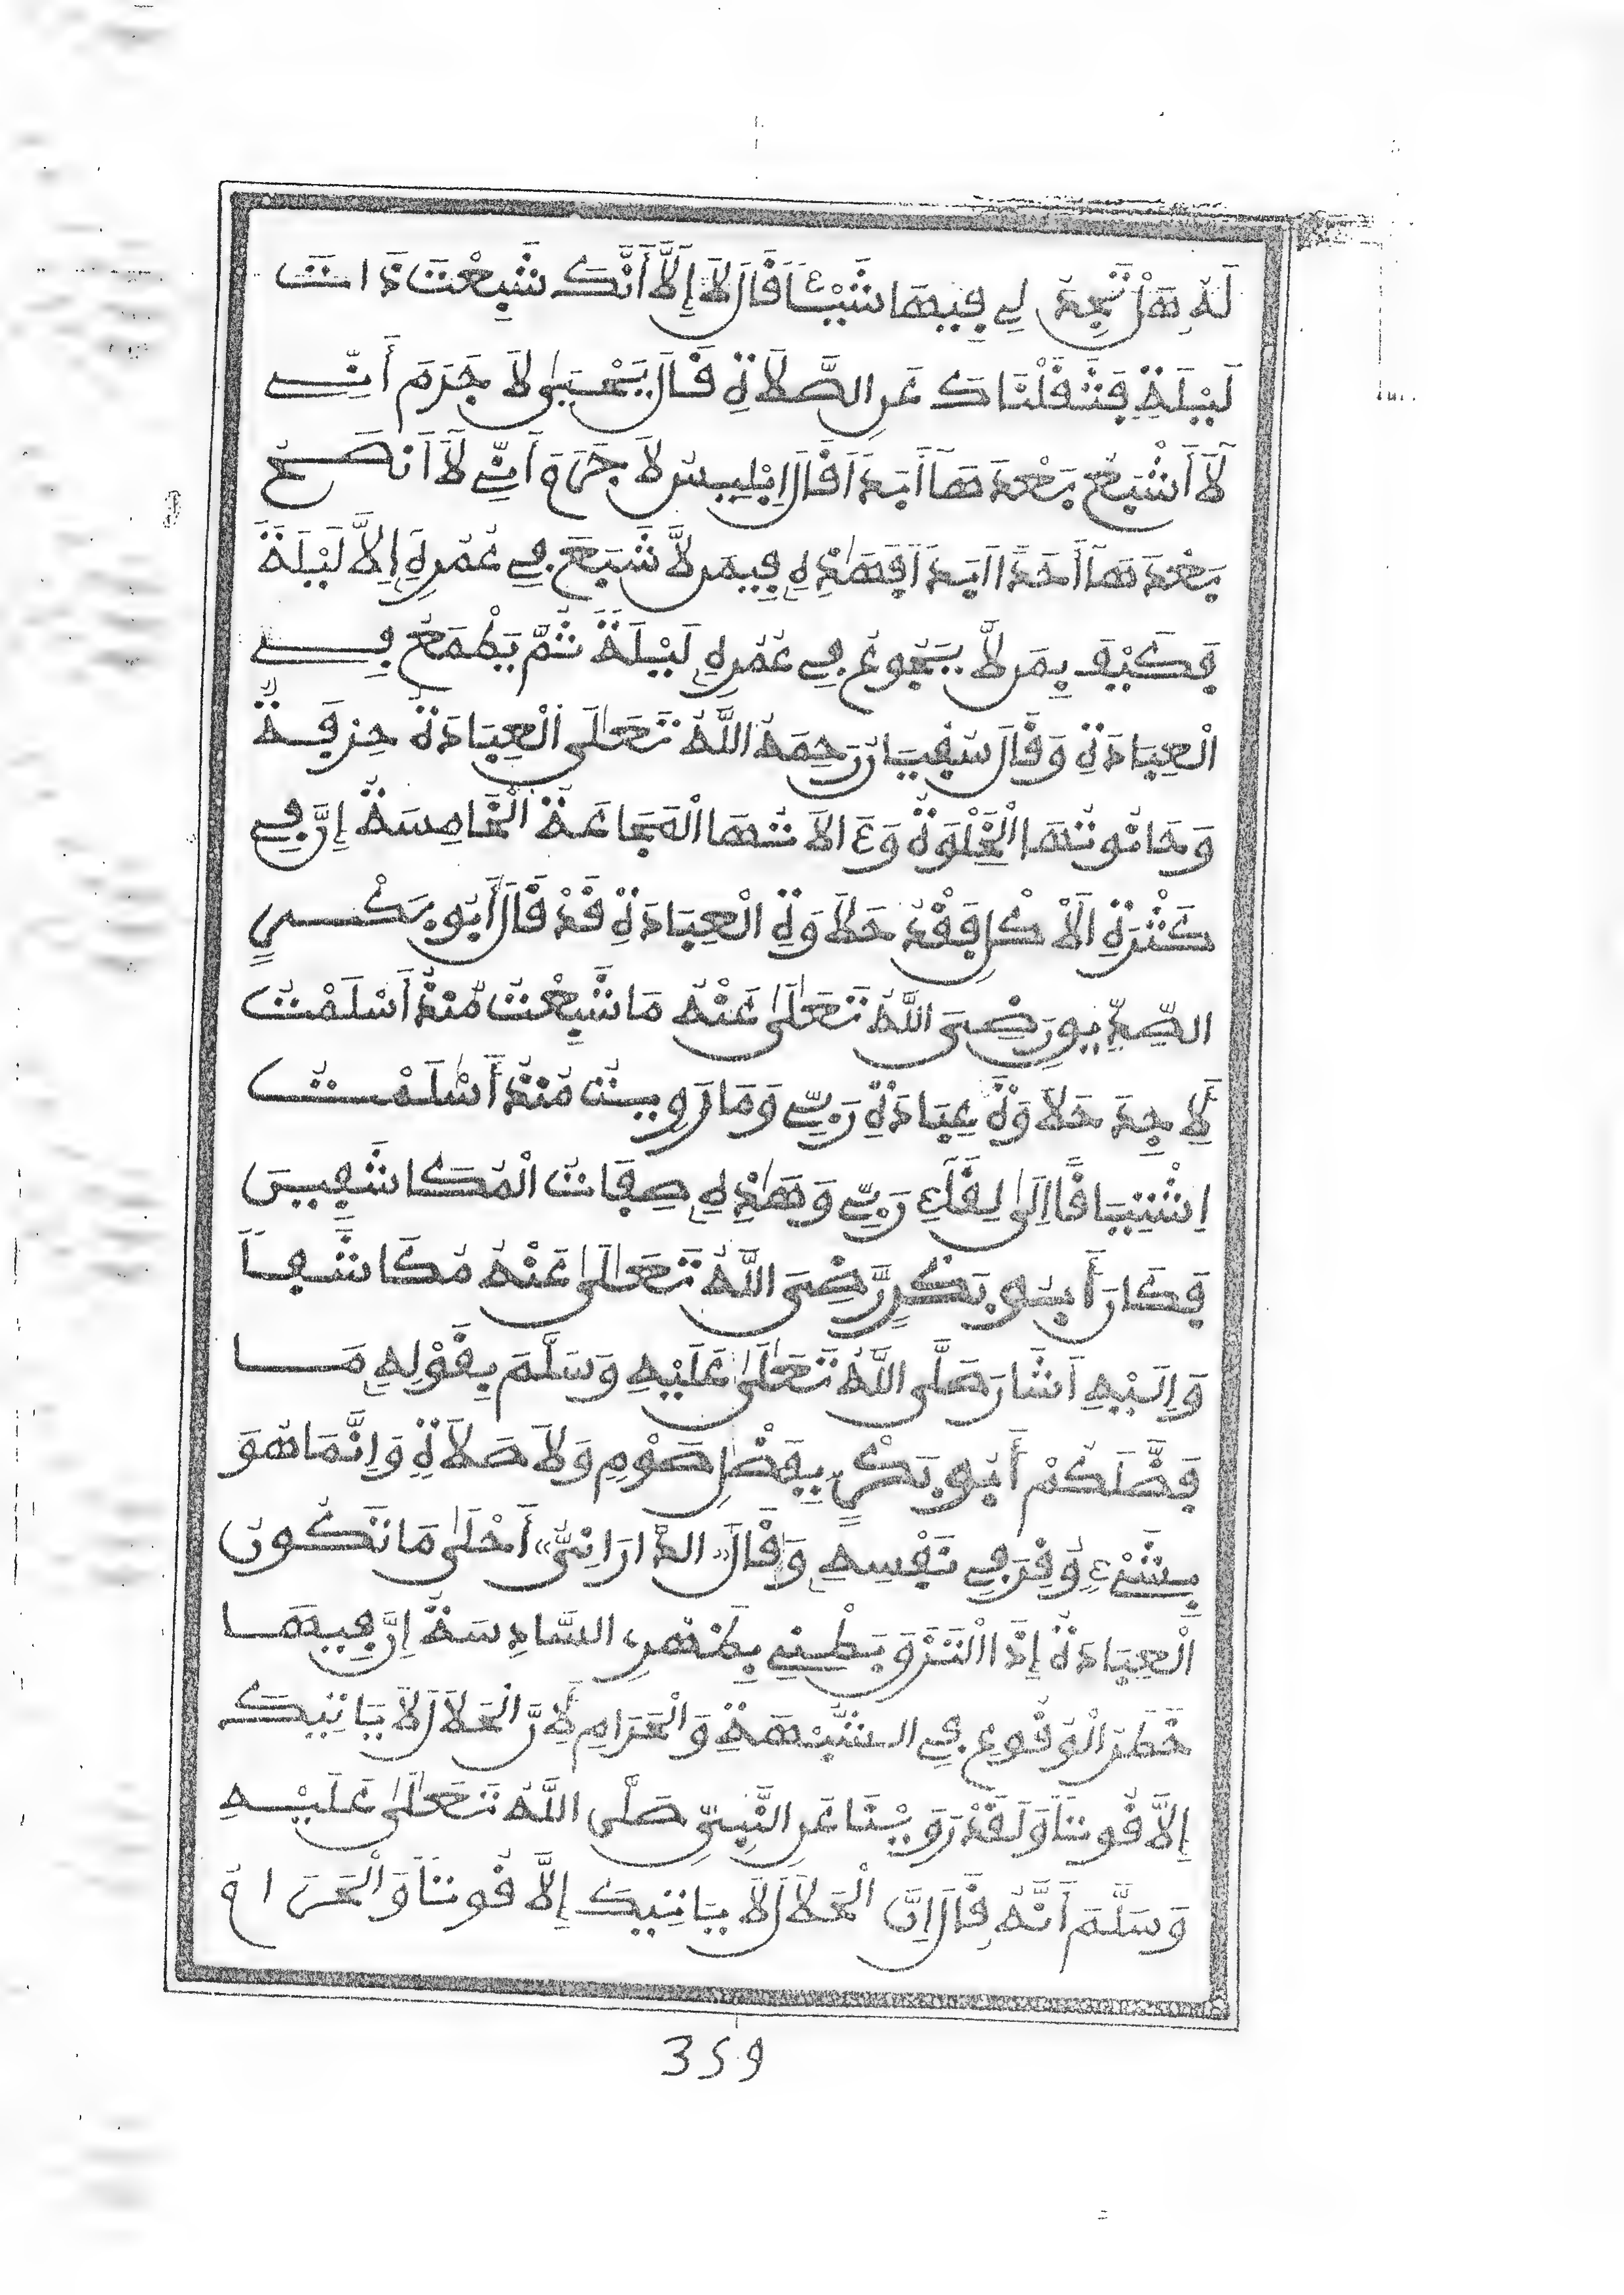 لَهُ هَلْ تَجِدُ لِي فِيهَا شَيْئًا قَالَ لَا إِلَّا أَنَّكَ شَبِعْتَ ذَاتَ
لَيْلَةٍ فَثَقَّلْنَاكَ عَنِ الصَّلَاةِ قَالَ يَحْيَىٰ لَا جَرَمَ أَنِّي
لَا أَشْبَعُ بَعْدَهَا أَبَدًا قَالَ إِبْلِيسُ لَا جَرَمَ أَنِّي لَا أَنْصَحُ
بَعْدَهَا أَحَدًا أَبَدًا فَهَٰذِهِ فِيمَن لَّا شَبَعَ فِي عُمُرِهِ إِلَّا لَيْلَةً
فَكَيْفَ بِمَن لَّا يَجُوعُ فِي عُمُرِهِ لَيْلَةً ثُمَّ يَطْمَعُ فِي
الْعِبَادَةِ وَقَالَ سُفْيَانُ رَحِمَهُ اللَّهُ تَعَالَى الْعِبَادَةُ حِرْفَةٌ
وَحَانُوتُهَا الْخَلْوَةُ وَءَالَاتُهَا الْمَجَاعَةُ الْخَامِسَةُ إِنَّ فِي
كَثْرَةِ الْأَكْلِ فَقْدُ حَلَاوَةِ الْعِبَادَةِ قَدْ قَالَ أَبُو بَكْرٍ
الصِّدِّيقُ رَضِيَ اللَّهُ تَعَالَىٰ عَنْهُ مَا شَبِعْتُ مُنْذُ أَسْلَمْتُ
لِأَجِدَ حَلَاوَةَ عِبَادَةِ رَبِّي وَمَا رَوِيتُ مُنْذُ أَسْلَمْتُ
اِشْتِيَاقًا إِلَىٰ لِقَاءِ رَبِّي وَهَٰذِهِ صِفَاتُ الْمُكَاشَفِينَ
فَكَانَ أَبُو بَكْرٍ رَّضِيَ اللَّهُ تَعَالَىٰ عَنْهُ مُكَاشَفًا
وَإِلَيْهِ أَشَارَ صَلَّى اللَّهُ تَعَالَىٰ عَلَيْهِ وَسَلَّمَ بِقَوْلِهِ مَا
فَضَّلَكُمْ أَبُو بَكْرٍ بِفَضْلِ صَوْمٍ وَلَا صَلَاةٍ وَإِنَّمَا هُوَ
بِشَيْءٍ وُقِرَ فِي نَفْسِهِ وَقَالَ «الدَّارَانِيُّ» أَحْلَىٰ مَا تَكُونُ
الْعِبَادَةُ إِذَا الْتَزَقَ بَطْنِي بِظَهْرِي، السَّادِسَةُ إِنَّ فِيهَا
خَطَرَ الْوُقُوعِ فِي الشُّبْهَةِ وَالْحَرَامِ لِأَنَّ الْحَلَالَ لَا يَاتِيكَ
إِلَّا قُوتًا وَلَقَدْ رَوَيْنَا عَنِ النَّبِيِّ صَلَّى اللَّهُ تَعَالَىٰ عَلَيْهِ
وَسَلَّمَ أَنَّهُ قَالَ إِنَّ الْحَلَالَ لَا يَاتِيكَ إِلَّا قُوتًا وَالْحَرَامُ
359